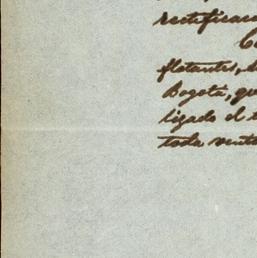 rectificac
Co
flotantes, l
Bogotá, qu
ligado el t
toda vent